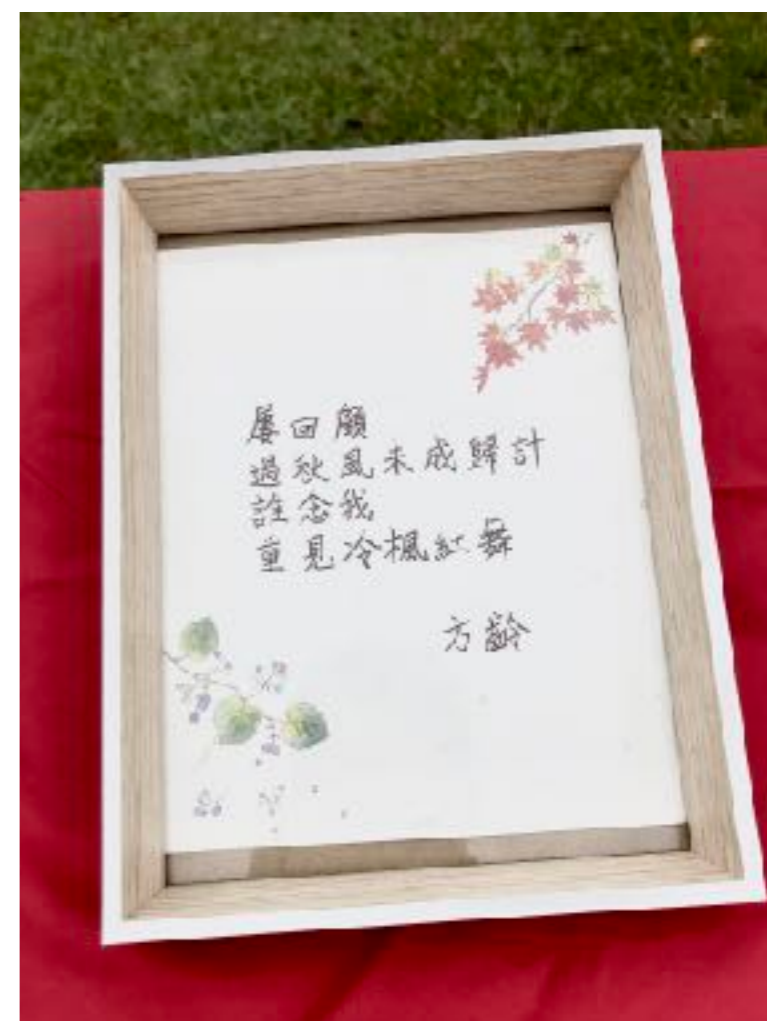 屢回顧
過秋風未成歸計
誰念我
重見冷楓紅舞
方齡